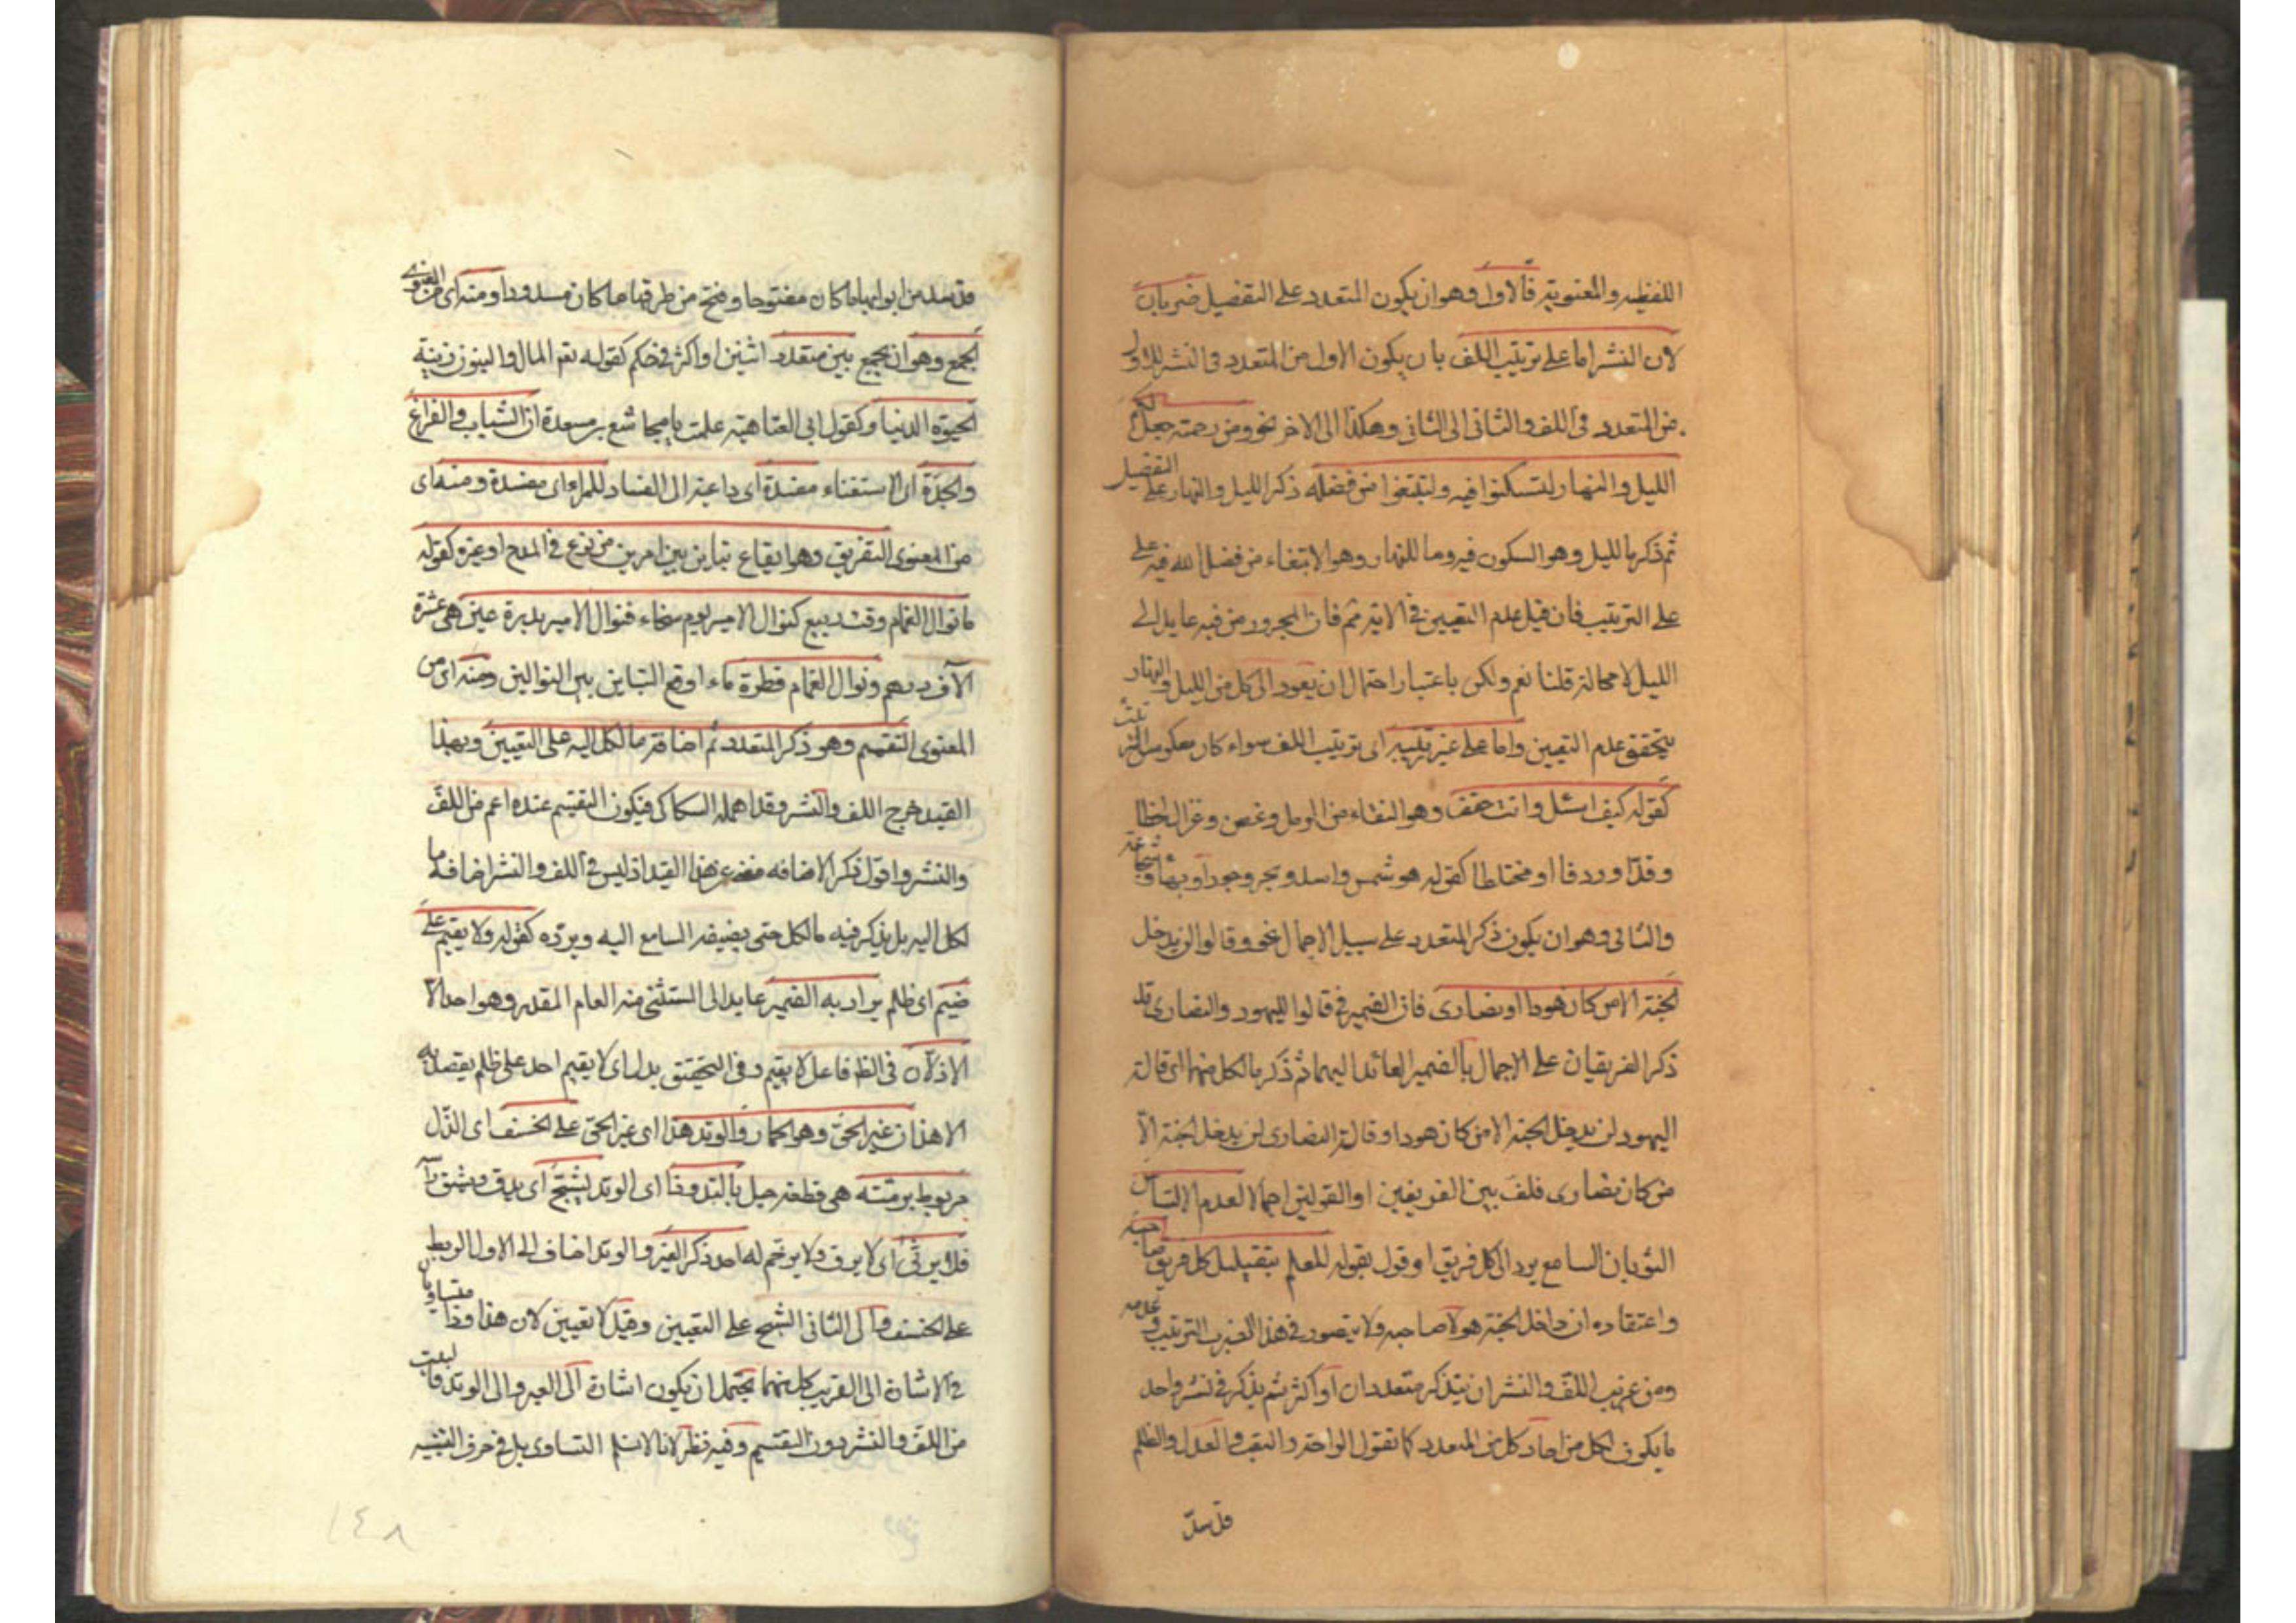 اللفظيه والمعنوية فالاول وهو ان يكون المتعدد على التفضيل ضربان
لان النشر اما على ترتيب اللف بان يكون الاول من المتعدد فى النشر للاول
من المتعدد فى اللف والثانى الى الثانى وهكذا الى الاخر نحو ومن رحمته جعل لكم
الليل والنهار لتسكنوا فيه ولتبتغوا من فضله ذكر الليل والنهار على التفضيل
ثم ذكر ما لليل وهو السكون فيه وما للنهار وهو الابتغاء من فضل الله فيه على
على الترتيب فان قيل عدم التعيين فى الاية مم فان المجرور من فيه عايد الى
الليل لا محالة قلنا نعم ولكن باعتبار احتمال ان يعود الى كل من الليل والنهار
يتحقق عدم التعيين واما على غير ترتيبه اى ترتيب اللف سواء كان معكوس
كقوله كيف اسئل وانت حقف وهو النقاء من الرمل وغصن وغزال لحظا
وقدّا وردفا او مختلطا كقوله هو شمس واسد وبحر وجودا وبهاء وشجاعة
والثانى وهو ان يكون ذكر المتعدد على سبيل الاجمال نحو وقالوا لن يدخل
الجنة الا من كان هودا او نصارى فان الضمير فى قالوا لليهود والنصارى قد
ذكر الفريقان على الاجمال بالضمير العائد اليهما ثم ذكر ما لكل منهما اى قالت
اليهود لن يدخل الجنة الا من كان هودا وقالت النصارى لن يدخل الجنة الّا
من كان نصارى فلف بين الفريقين او القولين اجمالا لعدم الالتباس
الثوبان السامع يرد الى كل فريق او قول بقوله للعلم بتضليل كل فريق صاحبه
واعتقاده ان داخل الجنة هو لا صاحبه ولا يتصور فى هذا الضرب الترتيب وعدمه
ومن غريب اللف والنشر ان يذكر متعددان او اكثر ثم يذكر فى نشر واحد
ما يكون لكل من احاد كل من المتعدد كما تقول الراحة والتعب والعدل والظلم
قد سدّ
قد سد من ابوابها ما كان مفتوحا وفتح من طرقها ما كان مسدودا ومنه اى من المعنوى
الجمع وهو ان يجمع بين متعدد اثنين او اكثر فى حكم كقوله تع المال والبنون زينة
الحيوة الدنيا وكقول ابى العتاهية علمت يا مجاشع بن مسعدة ان الشباب والفراغ
والجدة اى الاستغناء مفسدة اى داعية الى الفساد للمرء اى مفسدة ومنه اى
من المعنوى التفريق وهو ايقاع تباين بين امرين من نوع فى المدح او غيره كقوله
ما نوال الغمام وقت ربيع كنوال الامير يوم سخاء فنوال الامير بدرة عين هى عشرة
الآف درهم ونوال الغمام قطرة ماء اوقع التباين بين النوالين ومنه اى من
المعنوى التقسيم وهو ذكر المتعدد ثم اضافة ما لكل اليه على التعيين وبهذا
القيد خرج اللف والنشر وقد اهمله السكاكى فيكون التقسيم عنده اعم من اللف
والنشر واقول ذكر الاضافه مغن عن هذا القيد اذ ليس فى اللف والنشر اضافة ما
لكل اليه بل يذكر فيه ما لكل حتى يضيفه السامع اليه ويرده كقوله ولا يقيم على
ضيم اى ظلم يراد به الضمير عايد الى المستثنى منه العام المقدر وهو احد الا
الاذلان فى الظ فاعل لا يقيم وفى التحقيق بدل اى لا يقيم احد على ظلم يقصد به
الا هذان غير الحى وهو الحمار والوتد هذا اى غير الحى على الخسف اى الذل
مربوط برمته هى قطعة حبل بالية وذا اى الوتد يشج اى يدق ويشق
فلا يرثى اى لا يرق ولا يرحم له احد ذكر العير والوتد اضاف الى الاول الربط
على الخسف والى الثانى الشج على التعيين وقيل لا تعيين لان هذا وذا متساويان
فى الاشارة الى القريب كل منهما يحتمل ان يكون اشارة الى العير والى الوتد فالبيت
من اللف والنشر دون التقسيم وفيه نظر لانا لا نسلم التساوى بل فى حرف التنبيه
١٤٨